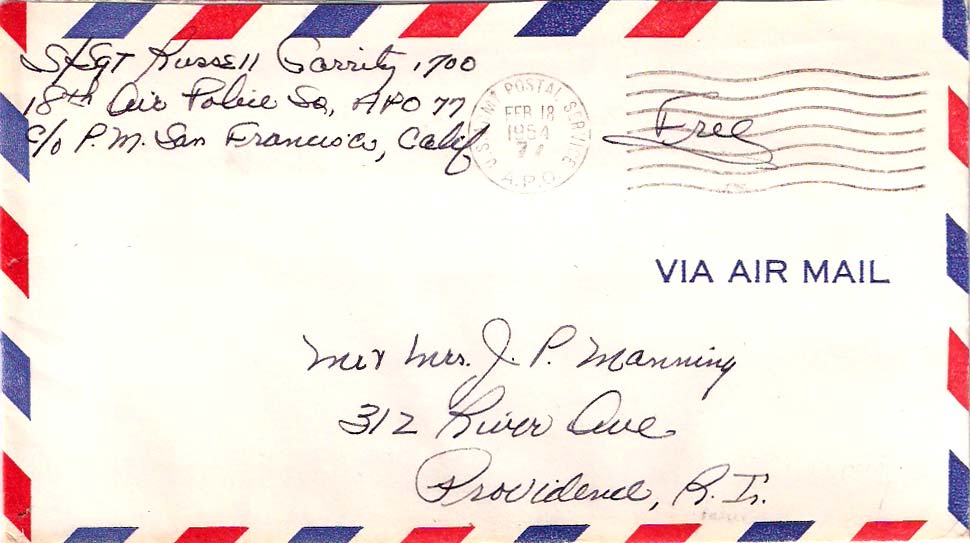 S/Sgt Russell Garrity 1700
18th Air Police Sq, APO 77
c/o P.M. San Francisco, Calif
POSTAL SERVICE
FEB 18
1954
A.P.O.
Free
VIA AIR MAIL
Mr + Mrs. J. P. Manning
312 River Ave
Providence, R. I.